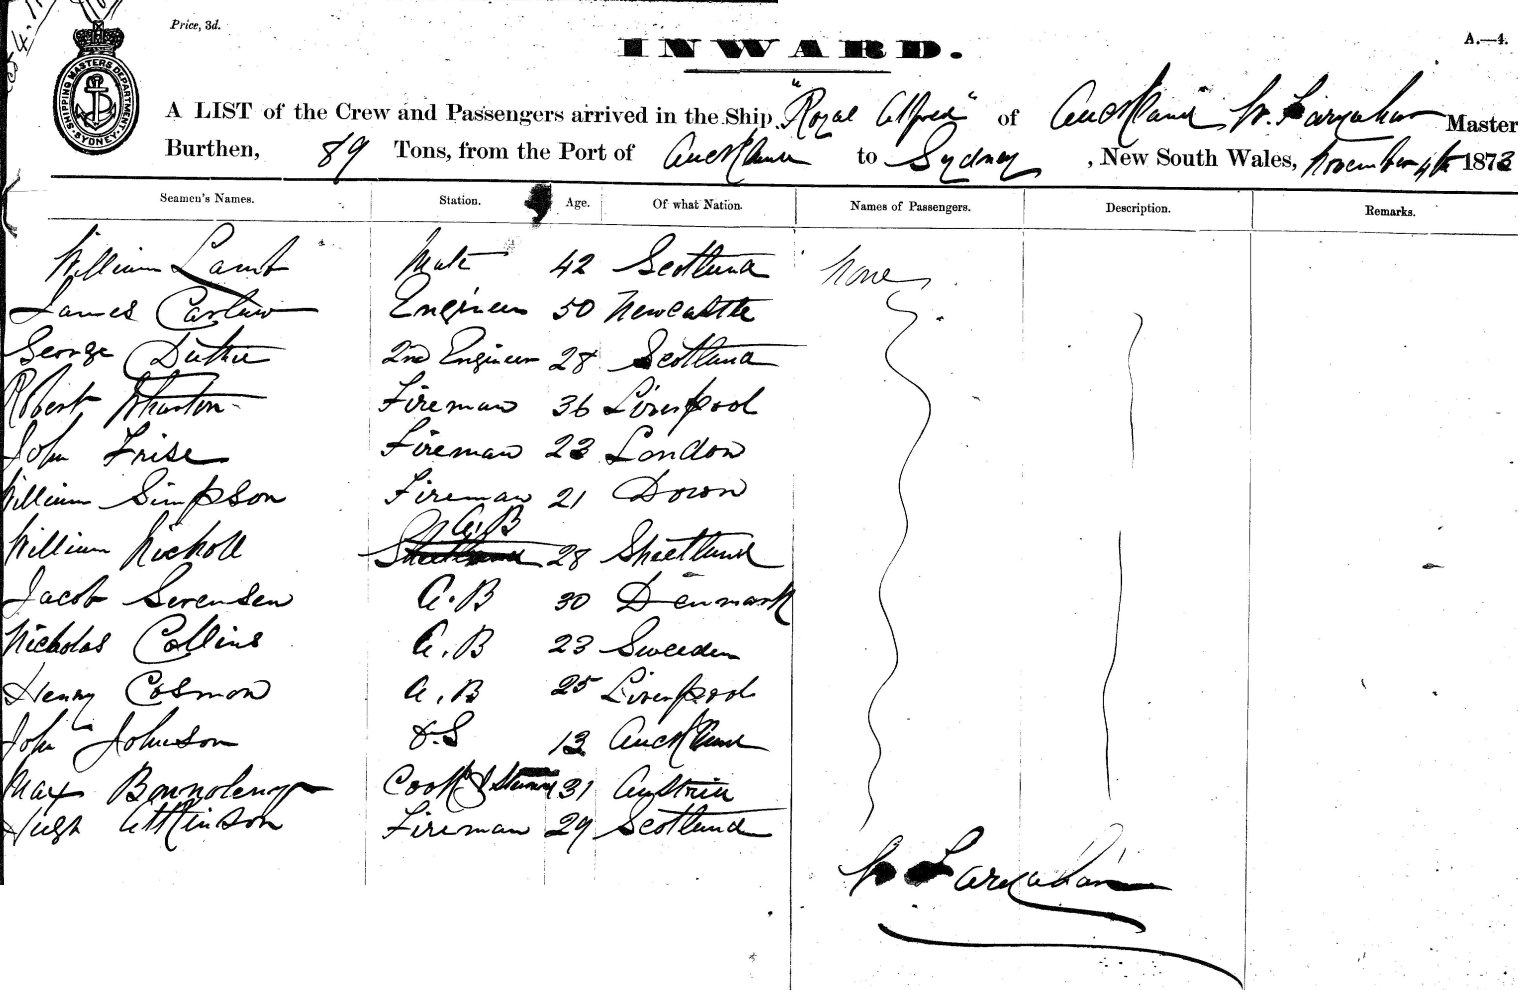 Price, 3d.
INWARD.
A.—4.
SHIPPING MASTERS DEPARTMENT SYDNEY
A LIST of the Crew and Passengers arrived in the Ship "Royal Alfred" of Auckland W. Farquhar Master
Burthen, 89 Tons, from the Port of Auckland to Sydney, New South Wales, November 4th 1873
Seamen's Names. Station. Age. Of what Nation. Names of Passengers. Description. Remarks.
William Lamb Mate 42 Scotland None
James Carlaw Engineer 50 Newcastle
George Duthie 2nd Engineer 28 Scotland
Robert Wharton Fireman 36 Liverpool
John Frise Fireman 23 London
William Simpson Fireman 21 Down
A.B
William Nicholl 28 Sheetland
Jacob Sorensen A.B 30 Denmark
Nicholas Collins A.B 23 Sweeden
Henry Cosmon A.B 25 Liverpool
John Johnson O.S 13 Auckland
Max Cook & 31 Austria
Hugh Attkinson Fireman 29 Scotland
W Farquhar